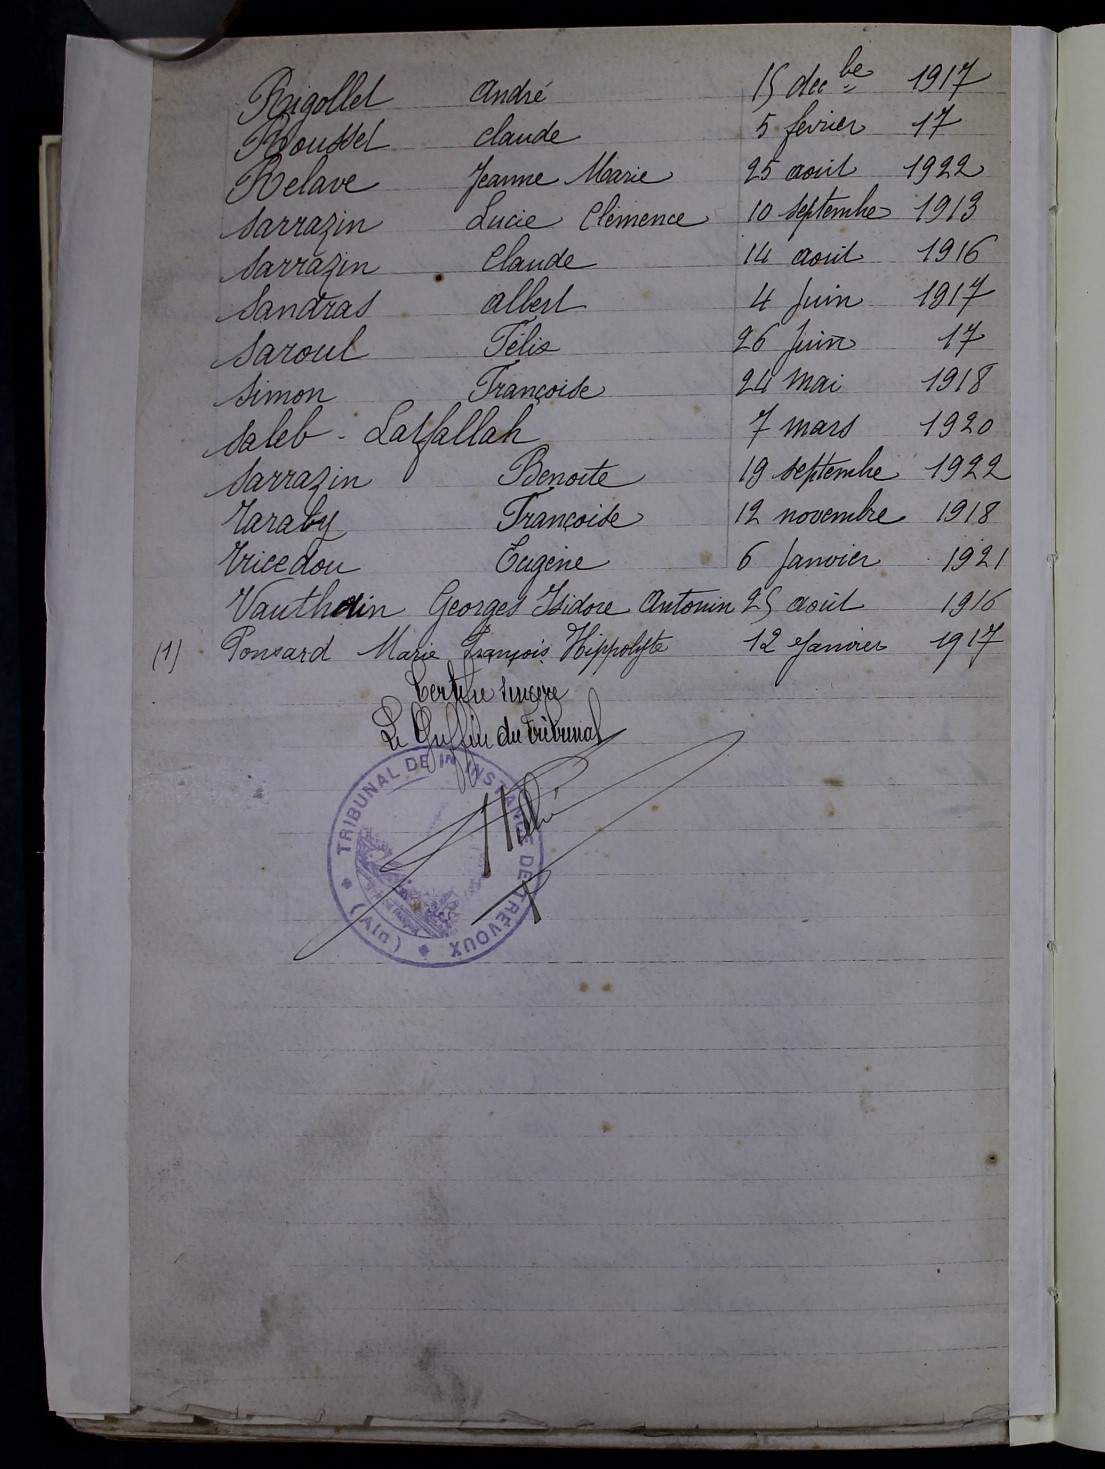 Rigollet André 15 dec be 1917
Roussel claude 5 fevrier 17
Relave Jeanne Marie 25 aout 1922
Sarrazin Lucie Clémence 10 septembre 1913
Sarrazin Claude 14 aout 1916
Sandras albert 4 Juin 1917
Saroul Félix 26 Juin 17
Simon Françoise 24 Mai 1918
Saleb - Latfallah 7 mars 1920
Sarrazin Benoite 19 septembre 1922
Taraby Françoise 12 novembre 1918
Tricedou Eugène 6 Janvier 1921
Vauthein Georges Isidore Antonin 25 août 1916
(1) Ponsard Marie François Hippolyte 12 Janvier 1917
Certifié sincère
Le Greffier du Tribunal
TRIBUNAL DE 1re INSTANCE DE TRÉVOUX
(Ain)